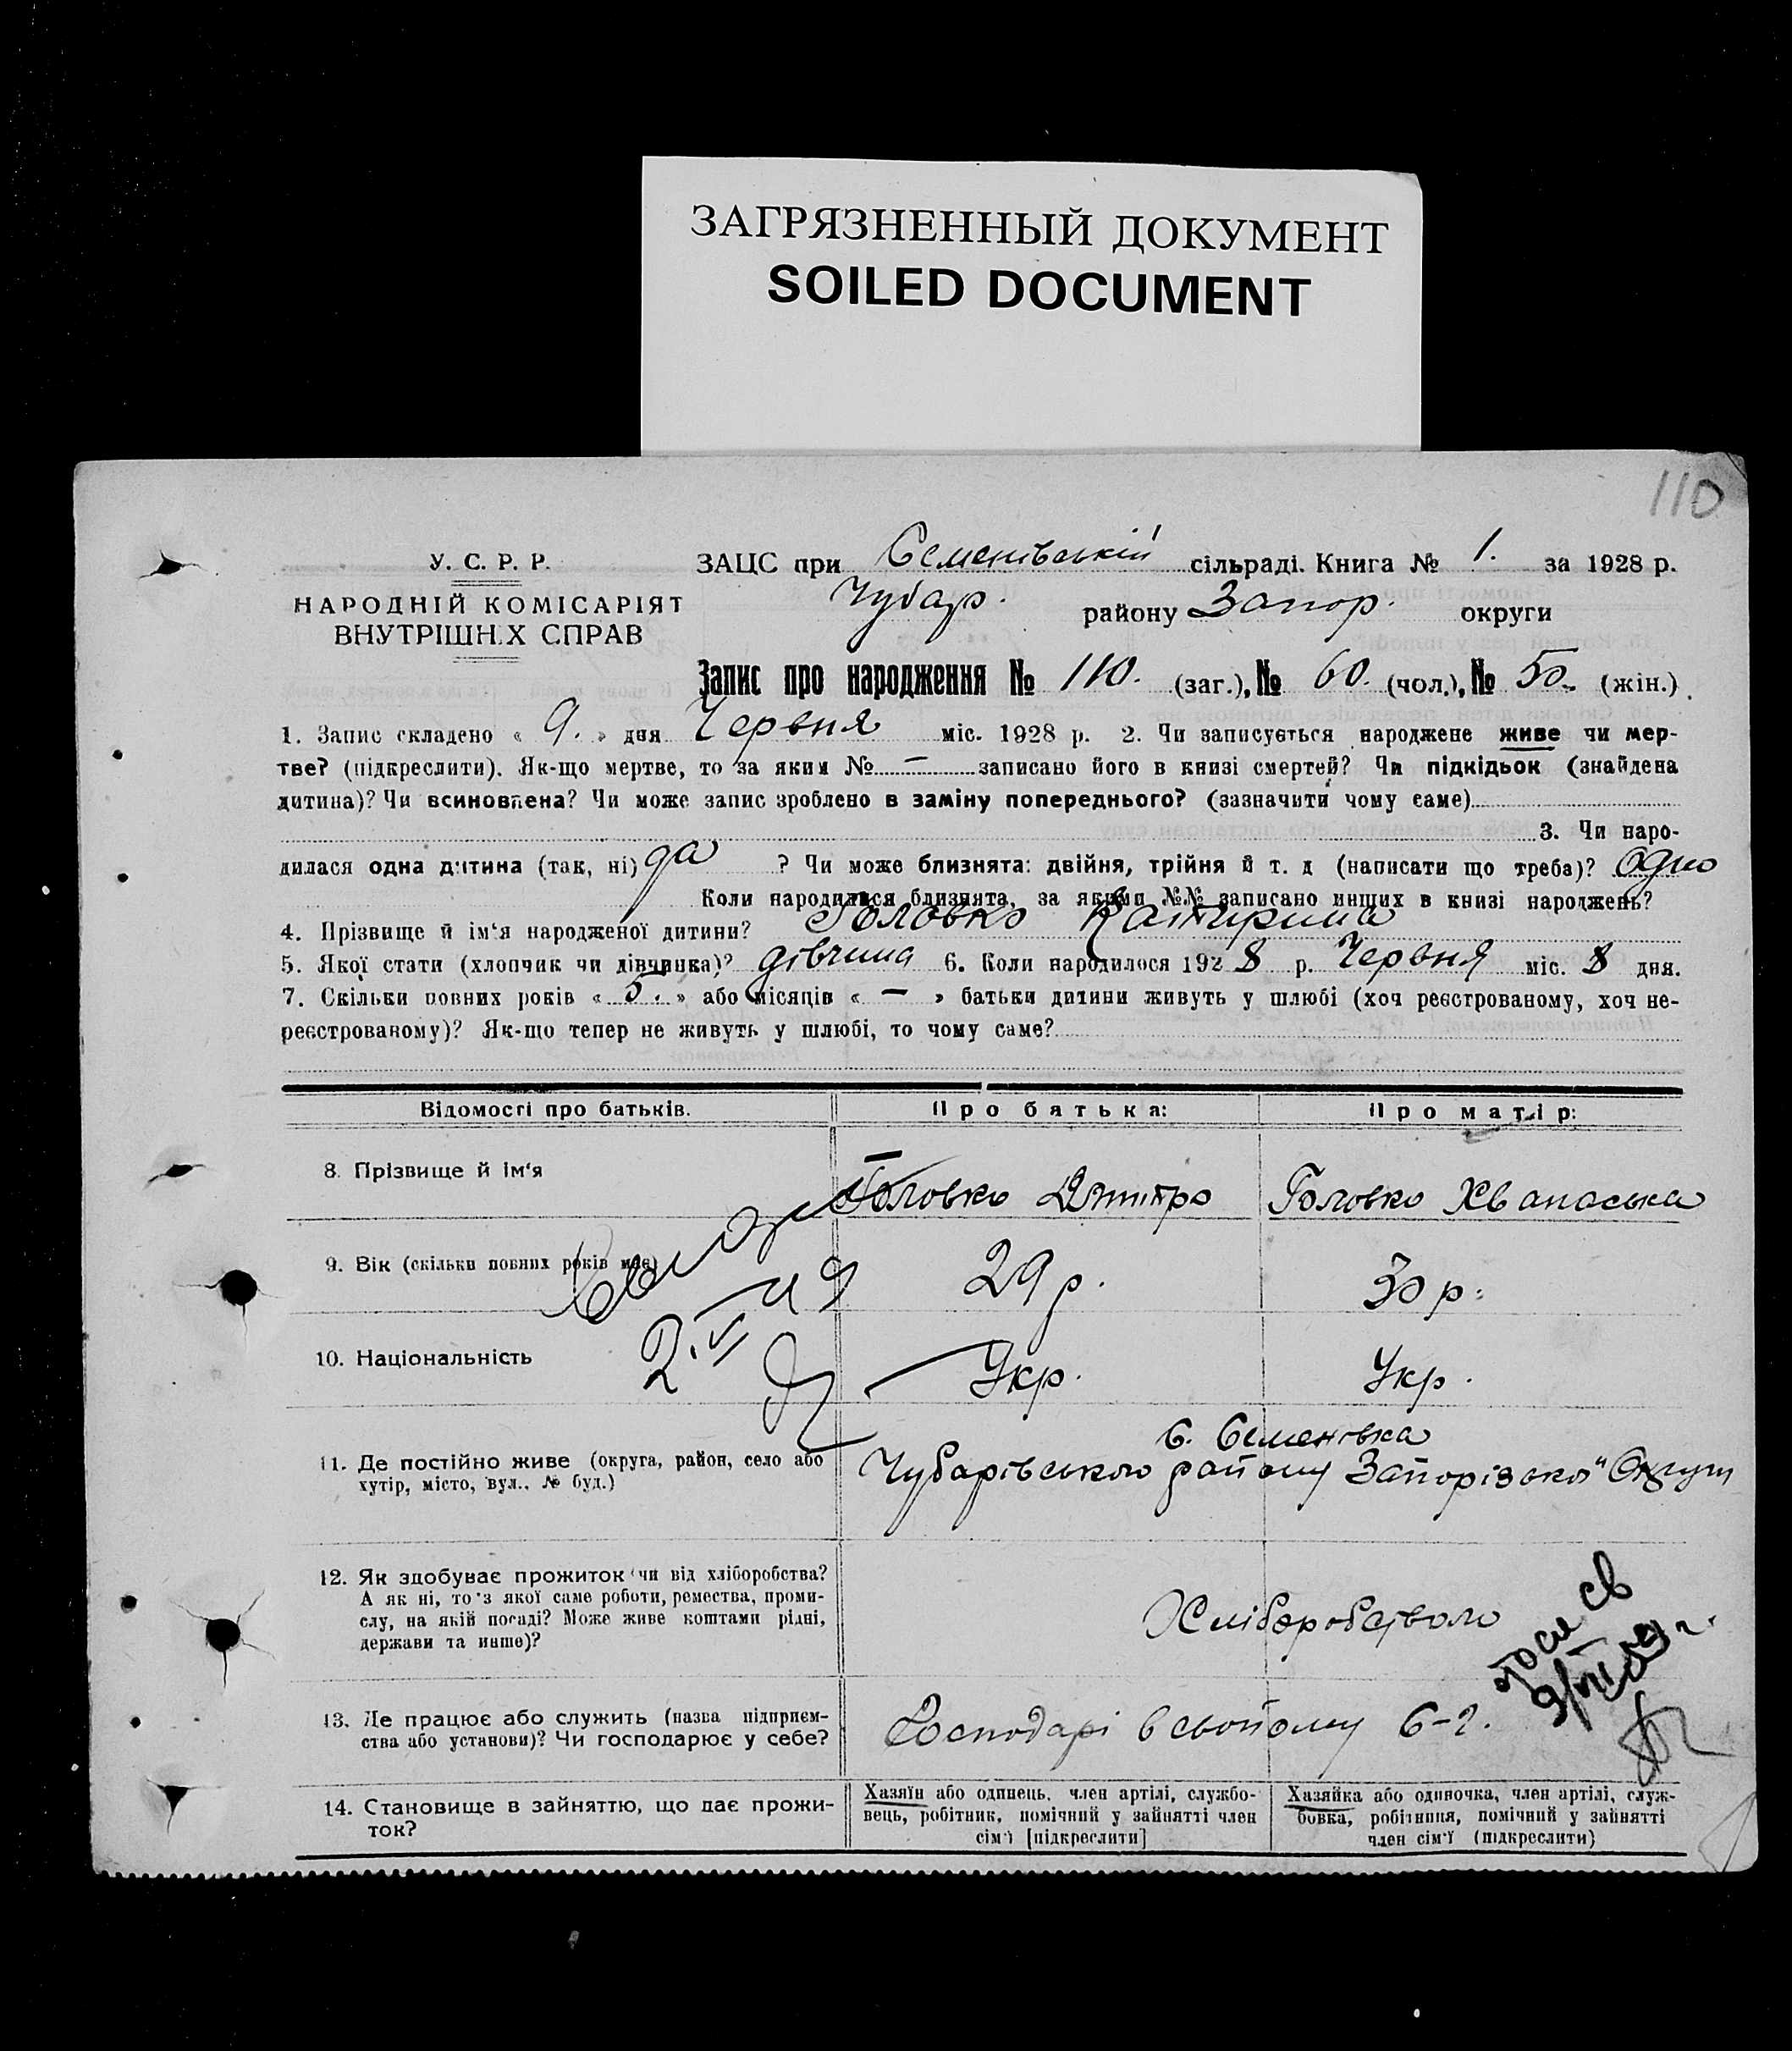 ЗАГРЯЗНЕННЫЙ ДОКУМЕНТ
SOILED DOCUMENT
110
У. С. Р. Р.
НАРОДНІЙ КОМІСАРІЯТ
ВНУТРІШНІХ СПРАВ
ЗАЦС при Семенівській сільраді. Книга № 1. за 1928 р.
Чубар. району Запор. округи
Запис про народження № 110. (заг.), № 60. (чол.), № 50. (жін.).
1. Запис складено « 9. » дня Червня міс. 1928 р. 2. Чи записується народжене живе чи мер-
тве? (підкреслити). Як-що мертве, то за яким № — записано його в книзі смертей? Чи підкідьок (знайдена
дитина)? Чи всиновлена? Чи може запис зроблено в заміну попереднього? (зазначити чому саме)
3. Чи наро-
дилася одна дитина (так, ні) да ? Чи може близнята: двійня, трійня й т. д (написати що треба)? одно
Коли народилися близнята, за якими №№ записано инших в книзі народжень?
4. Прізвище й ім'я народженої дитини? Головко Катирина
5. Якої стати (хлопчик чи дівчинка)? дівчина 6. Коли народилося 1928 р. Червня міс. 8 дня.
7. Скільки повних років « 5. » або місяців « — » батьки дитини живуть у шлюбі (хоч реєстрованому, хоч не-
реєстрованому)? Як-що тепер не живуть у шлюбі, то чому саме?
Відомості про батьків. Про батька: Про матір:
8. Прізвище й ім'я Головко Дмитро Головко Хванаська
9. Вік (скільки повних років має) 29 р. 30 р.
10. Національність Укр. Укр.
11. Де постійно живе (округа, район, село або
хутір, місто, вул., № буд.)
С. Семенівка
Чубарівського району Запорізької Округи
12. Як здобуває прожиток чи від хліборобства?
А як ні, то з якої саме роботи, ремества, проми-
слу, на якій посаді? Може живе коштами рідні,
держави та инше)?
Хліборобством
13. Де працює або служить (назва підприєм-
ства або установи)? Чи господарює у себе?
Господарі в свойому с-г.
14. Становище в зайняттю, що дає прожи-
ток?
Хазяїн або одинець, член артілі, службо-
вець, робітник, помічний у зайнятті член
сім'ї [підкреслити]
Хазяйка або одиночка, член артілі, служ-
бовка, робітниця, помічний у зайнятті
член сім'ї (підкреслити)